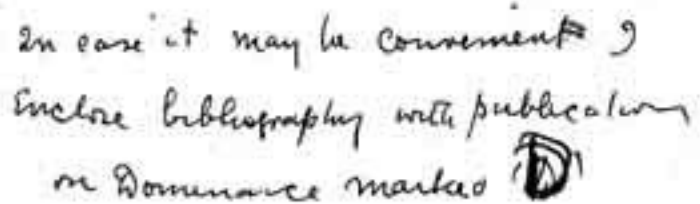 In case it may be convenient I
Enclose bibliography with publications
on Dominance marked D